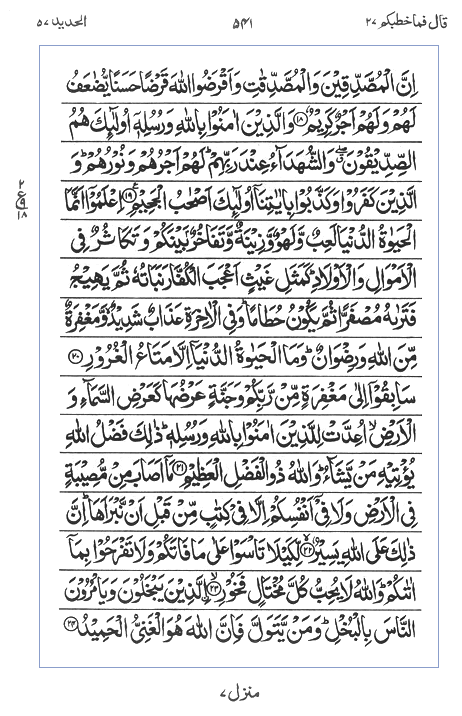 قال فماخطبكم ٢٧
٥٤١
الحديد ٥٧
اِنَّ الْمُصَّدِّقِيْنَ وَالْمُصَّدِّقٰتِ وَاَقْرَضُوا اللّٰهَ قَرْضًا حَسَنًا يُّضٰعَفُ
لَهُمْ وَلَهُمْ اَجْرٌ كَرِيْمٌ ١٨ وَالَّذِيْنَ اٰمَنُوْا بِاللّٰهِ وَرُسُلِهٖۤ اُولٰٓئِكَ هُمُ
الصِّدِّيْقُوْنَ ۖ وَالشُّهَدَآءُ عِنْدَ رَبِّهِمْ ؕ لَهُمْ اَجْرُهُمْ وَنُوْرُهُمْ ؕ وَ
الَّذِيْنَ كَفَرُوْا وَكَذَّبُوْا بِاٰيٰتِنَاۤ اُولٰٓئِكَ اَصْحٰبُ الْجَحِيْمِ ١٩ اِعْلَمُوْۤا اَنَّمَا
الْحَيٰوةُ الدُّنْيَا لَعِبٌ وَّلَهْوٌ وَّزِيْنَةٌ وَّتَفَاخُرٌۢ بَيْنَكُمْ وَتَكَاثُرٌ فِى
الْاَمْوَالِ وَالْاَوْلَادِ ؕ كَمَثَلِ غَيْثٍ اَعْجَبَ الْكُفَّارَ نَبَاتُهٗ ثُمَّ يَهِيْجُ
فَتَرٰىهُ مُصْفَرًّا ثُمَّ يَكُوْنُ حُطَامًا ؕ وَفِى الْاٰخِرَةِ عَذَابٌ شَدِيْدٌ ۙ وَّمَغْفِرَةٌ
مِّنَ اللّٰهِ وَرِضْوَانٌ ؕ وَمَا الْحَيٰوةُ الدُّنْيَاۤ اِلَّا مَتَاعُ الْغُرُوْرِ ٢٠
سَابِقُوْۤا اِلٰى مَغْفِرَةٍ مِّنْ رَّبِّكُمْ وَجَنَّةٍ عَرْضُهَا كَعَرْضِ السَّمَآءِ وَ
الْاَرْضِ ۙ اُعِدَّتْ لِلَّذِيْنَ اٰمَنُوْا بِاللّٰهِ وَرُسُلِهٖ ؕ ذٰلِكَ فَضْلُ اللّٰهِ
يُؤْتِيْهِ مَنْ يَّشَآءُ ؕ وَاللّٰهُ ذُو الْفَضْلِ الْعَظِيْمِ ٢١ مَاۤ اَصَابَ مِنْ مُّصِيْبَةٍ
فِى الْاَرْضِ وَلَا فِىْۤ اَنْفُسِكُمْ اِلَّا فِىْ كِتٰبٍ مِّنْ قَبْلِ اَنْ نَّبْرَاَهَا ؕ اِنَّ
ذٰلِكَ عَلَى اللّٰهِ يَسِيْرٌ ٢٢ لِّكَيْلَا تَاْسَوْا عَلٰى مَا فَاتَكُمْ وَلَا تَفْرَحُوْا بِمَاۤ
اٰتٰىكُمْ ؕ وَاللّٰهُ لَا يُحِبُّ كُلَّ مُخْتَالٍ فَخُوْرِ ٢٣ الَّذِيْنَ يَبْخَلُوْنَ وَيَاْمُرُوْنَ
النَّاسَ بِالْبُخْلِ ؕ وَمَنْ يَّتَوَلَّ فَاِنَّ اللّٰهَ هُوَ الْغَنِىُّ الْحَمِيْدُ ٢٤
٢
ع
٩
١٨
منزل ٧